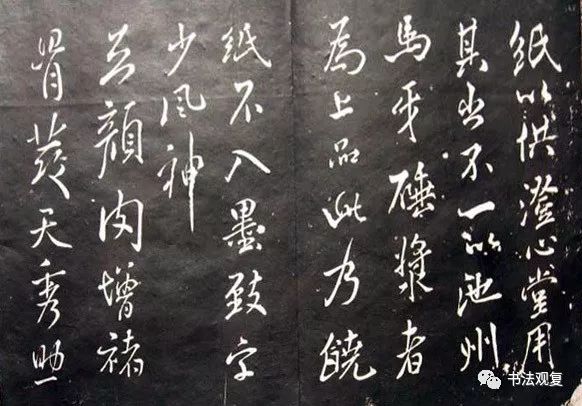 紙以供澄心堂用
其出不一以池州
馬牙硾漿者
為上品此乃饒
紙不入墨致字
少風神
顏肉增褚
骨天秀助
书法观复